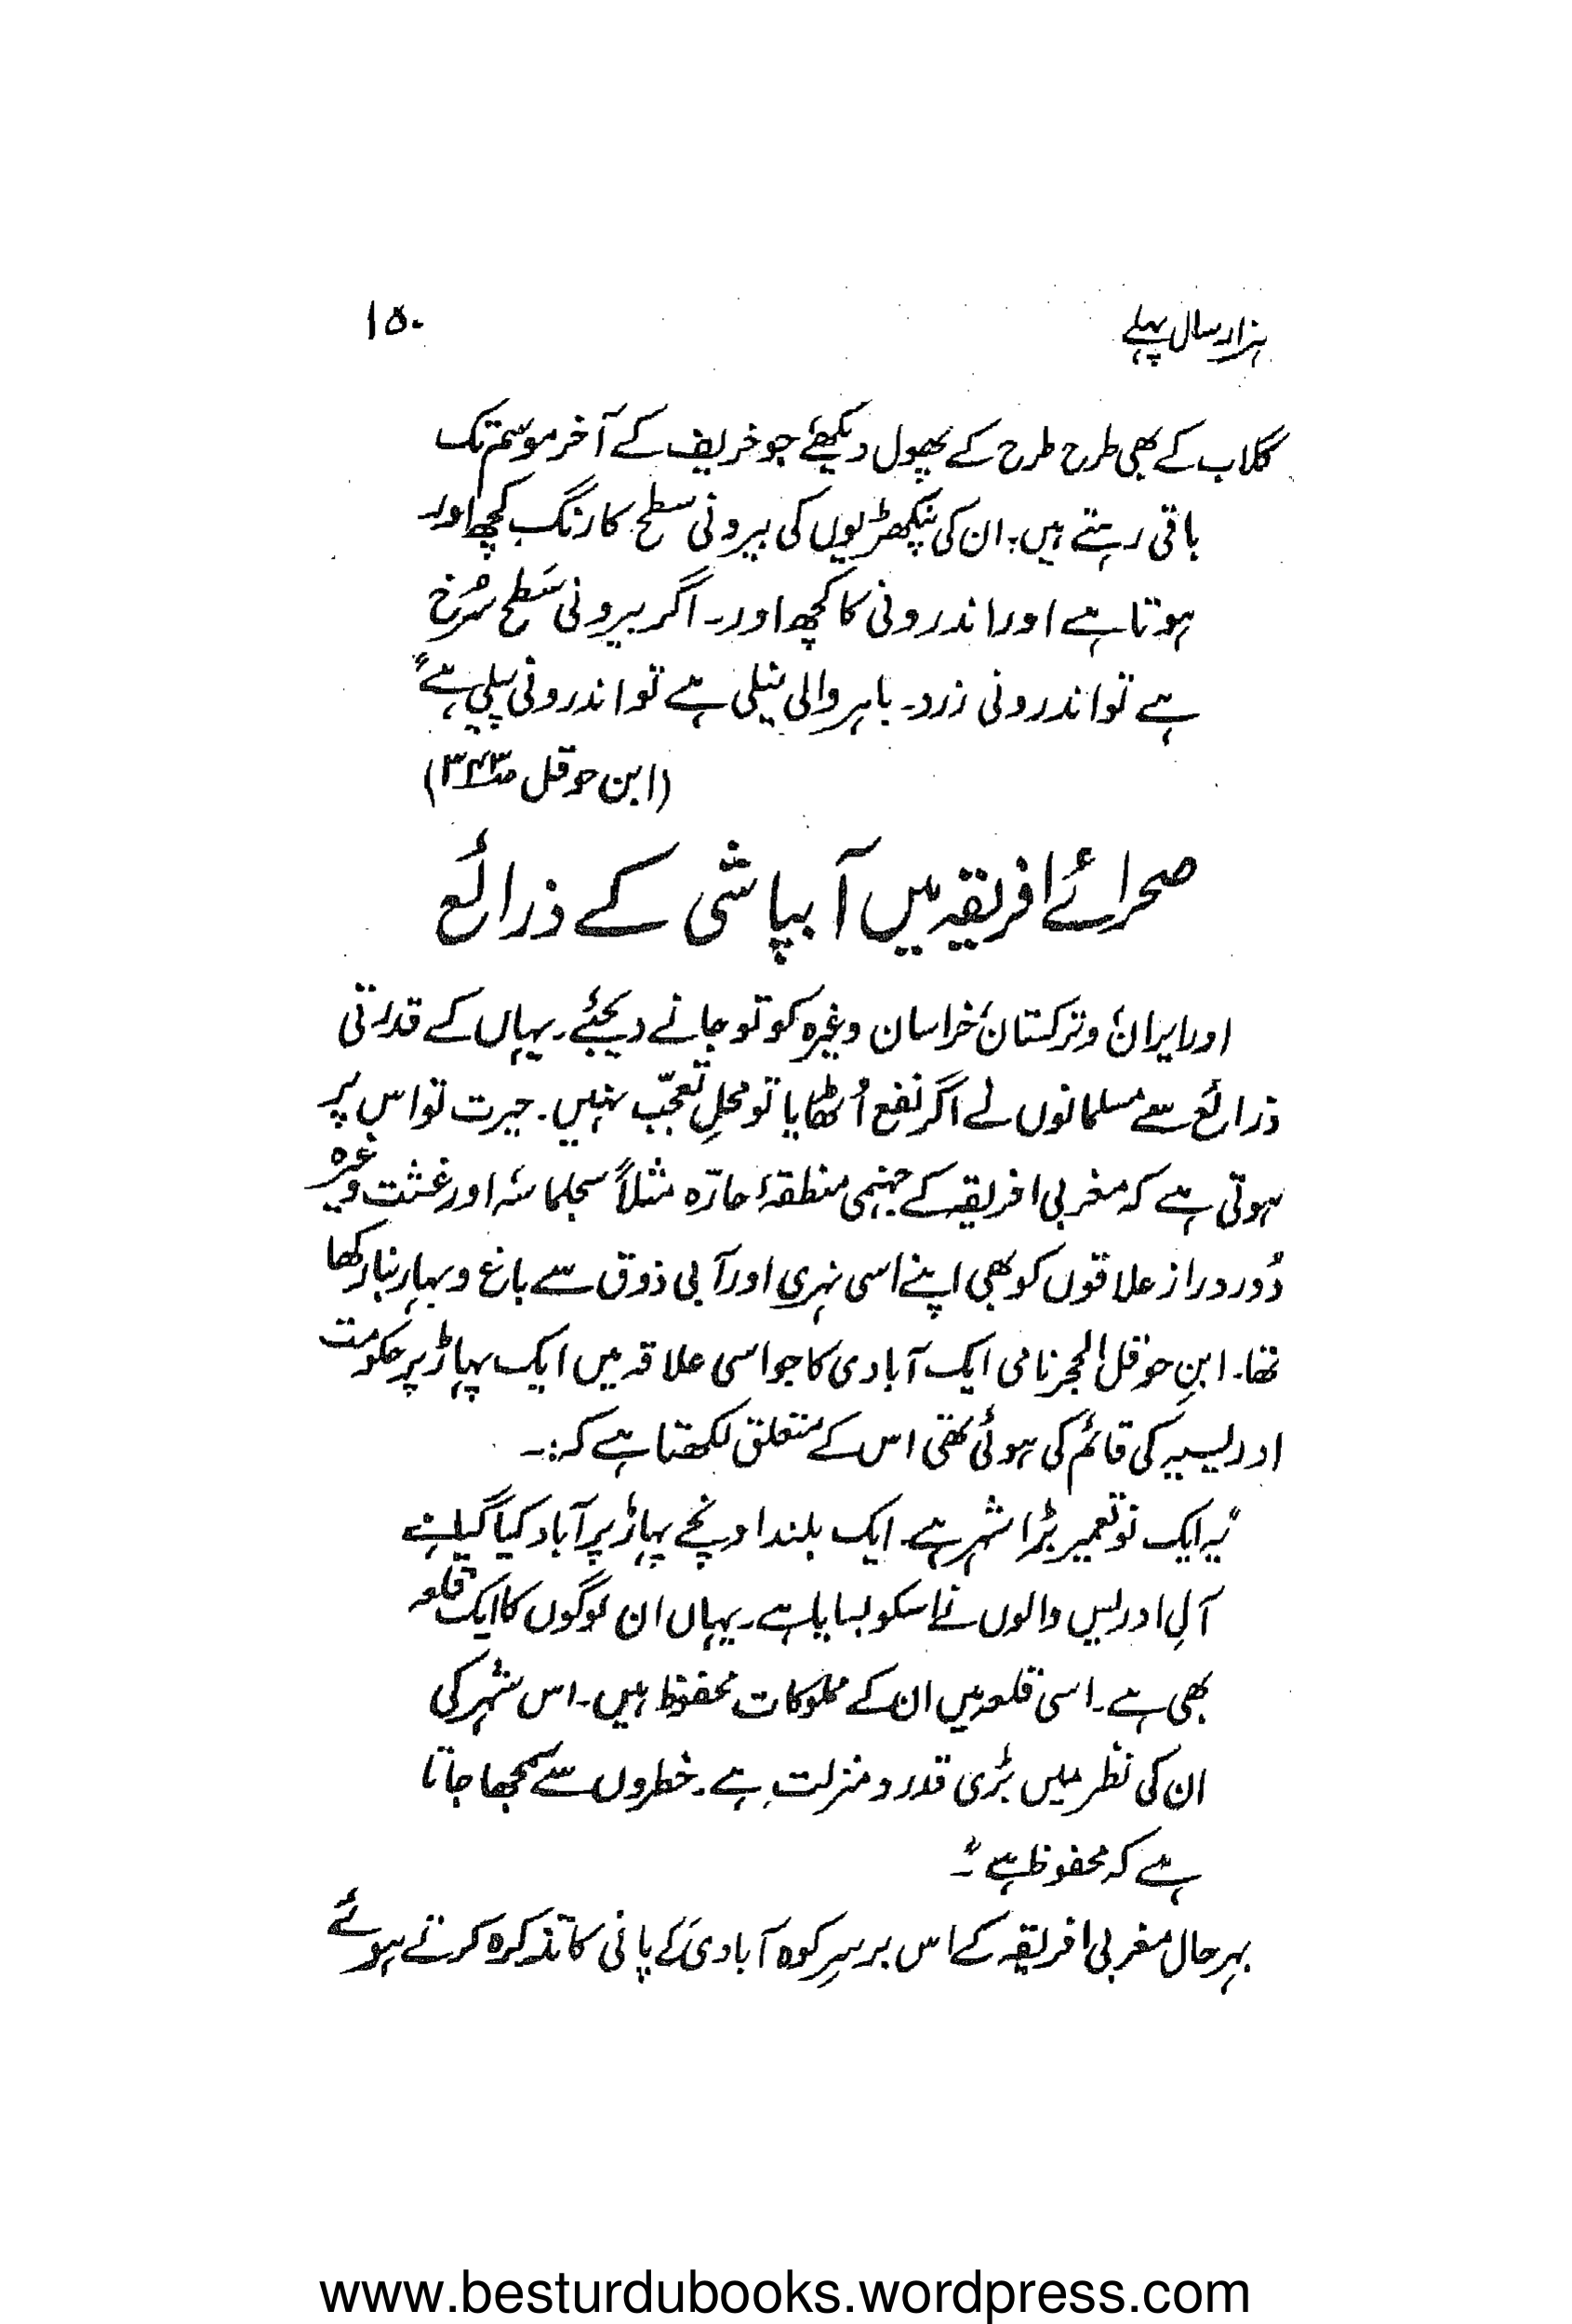 ہزار سال پہلے
۱۵۰
گلاب کے بھی طرح طرح کے پھول دیکھئے جو خریف کے آخر موسم تک
باقی رہتے ہیں۔ ان کی پنکھڑیوں کی بیرونی سطح کا رنگ کچھ اور
ہوتا ہے اور اندرونی کا کچھ اور۔ اگر بیرونی سَطح سُرخ
ہے تو اندرونی زرد۔ باہر والی نیلی ہے تو اندرونی پیلی ہے"
(ابن حوقل ص۳۴۳)
صحرائے افریقہ میں آبپاشی کے ذرائع
اور ایران وترکستان خراسان وغیرہ کو تو جانے دیجئے۔ یہاں کے قدرتی
ذرائع سے مسلمانوں نے اگر نفع اُٹھایا تو محلِ تعجّب نہیں۔ حیرت تو اس پر
ہوتی ہے کہ مغربی افریقہ کے جہنمی منطقۂ حارّہ مثلاً سجلماسہ اور غشت وغیرہ
دُور دراز علاقوں کو بھی اپنے اسی نہری اور آبی ذوق سے باغ و بہار بنا رکھا
تھا۔ ابنِ حوقل الحجر نامی ایک آبادی کا جو اسی علاقہ میں ایک پہاڑ پر حکومت
ادریسیہ کی قائم کی ہوئی تھی اس کے متعلق لکھتا ہے کہ:۔
"یہ ایک نوتعمیر بڑا شہر ہے۔ ایک بلند اونچے پہاڑ پر آباد کیا گیا ہے
آلِ ادریس والوں نے اسکو بسایا ہے۔ یہاں ان لوگوں کا ایک قلعہ
بھی ہے۔ اسی قلعہ میں ان کے مملوکات محفوظ ہیں۔ اس شہر کی
ان کی نظر میں بڑی قدر و منزلت ہے۔ خطروں سے سمجھا جاتا
ہے کہ محفوظ ہے"۔
بہرحال مغربی افریقہ کے اس برسرِ کوہ آبادی کے پانی کا تذکرہ کرتے ہوئے
www.besturdubooks.wordpress.com